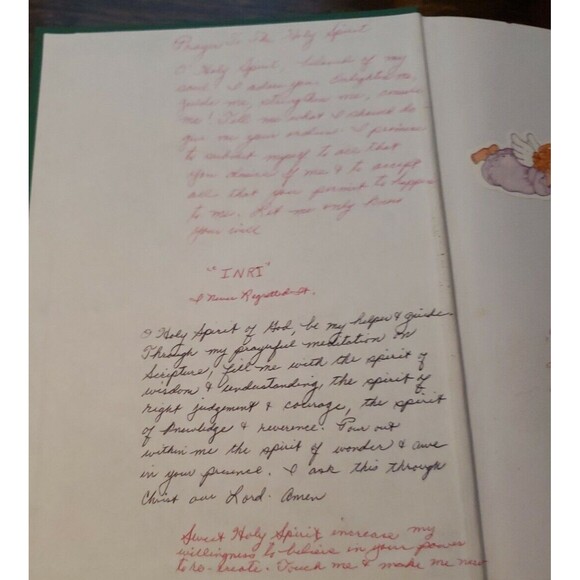 Prayer To The Holy Spirit
O' Holy Spirit, beloved of my
soul, I adore you. Enlighten me,
guide me, strengthen me, console
me! Tell me what I should do
give me your orders. I promise
to submit myself to all that
you desire of me & to accept
all that you permit to happen
to me. Let me only know
your will
"INRI"
I Never Regretted It.
O Holy Spirit of God, be my helper & guide
Through my prayerful meditation on
Scripture, fill me with the spirit of
wisdom & understanding, the spirit of
right judgement & courage, the spirit
of knowledge & reverence. Pour out
within me the spirit of wonder & awe
in your presence. I ask this through
Christ our Lord. Amen
Sweet Holy Spirit increase my
willingness to believe in your power
to re-create. Touch me & make me new